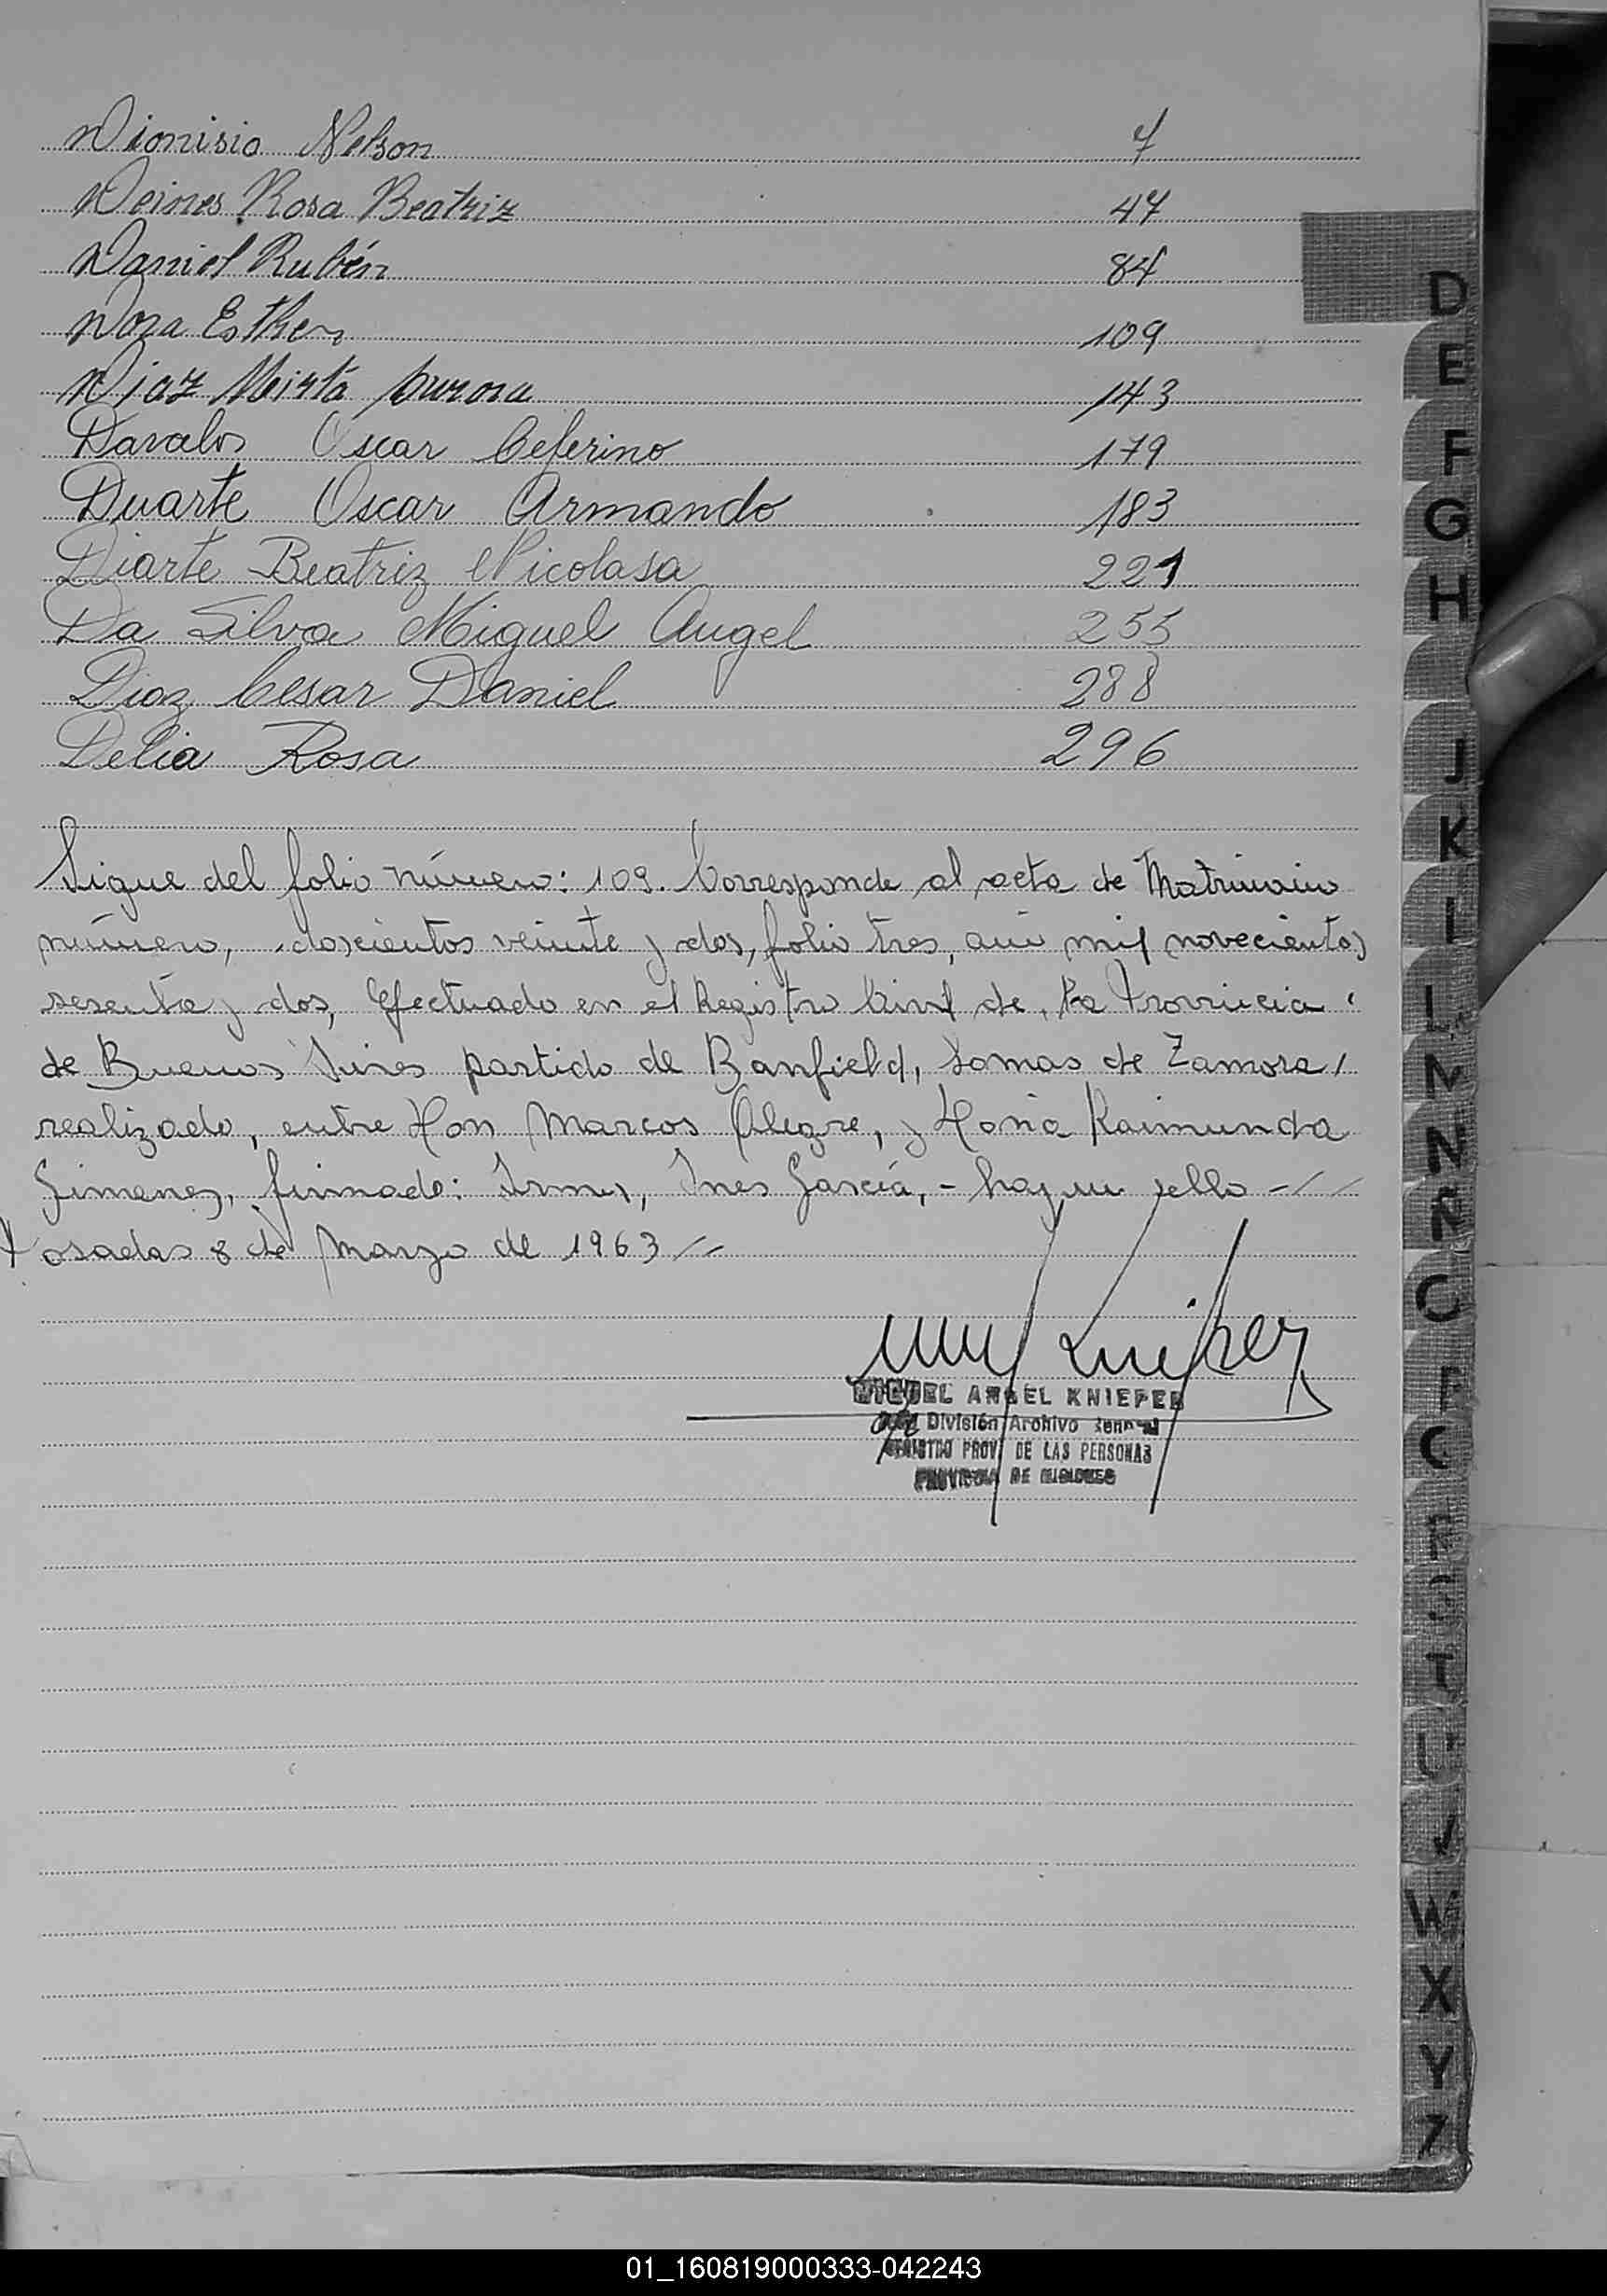 Dionisio Nelson 7
Deines Rosa Beatriz 47
Daniel Rubén 84
Dora Esther 109
Diaz Mirta Aurora 143
Davalos Oscar Ceferino 179
Duarte Oscar Armando 183
Diarte Beatriz Nicolasa 221
Da Silva Miguel Angel 255
Diaz Cesar Daniel 288
Delia Rosa 296
Sigue del folio número: 109. Corresponde al acta de Matrimonio
número, doscientos veinte y dos, folio tres, año mil novecientos
sesenta y dos, Efectuado en el Registro Civil de, la Provincia
de Buenos Aires partido de Banfield, Lomas de Zamora,
realizado, entre Don Marcos Alegre, y Doña Raimunda
Gimenez, firmado: Ines García, - hay un sello - //
Posadas 8 de Marzo de 1963 //
MIGUEL ANGEL KNIEPER
División Archivo
REGISTRO PROV DE LAS PERSONAS
PROVINCIA DE MISIONES
D
E
F
G
H
J
K
L
M
N
Ñ
O
P
Q
R
S
T
U
V
W
X
Y
Z
01_160819000333-042243